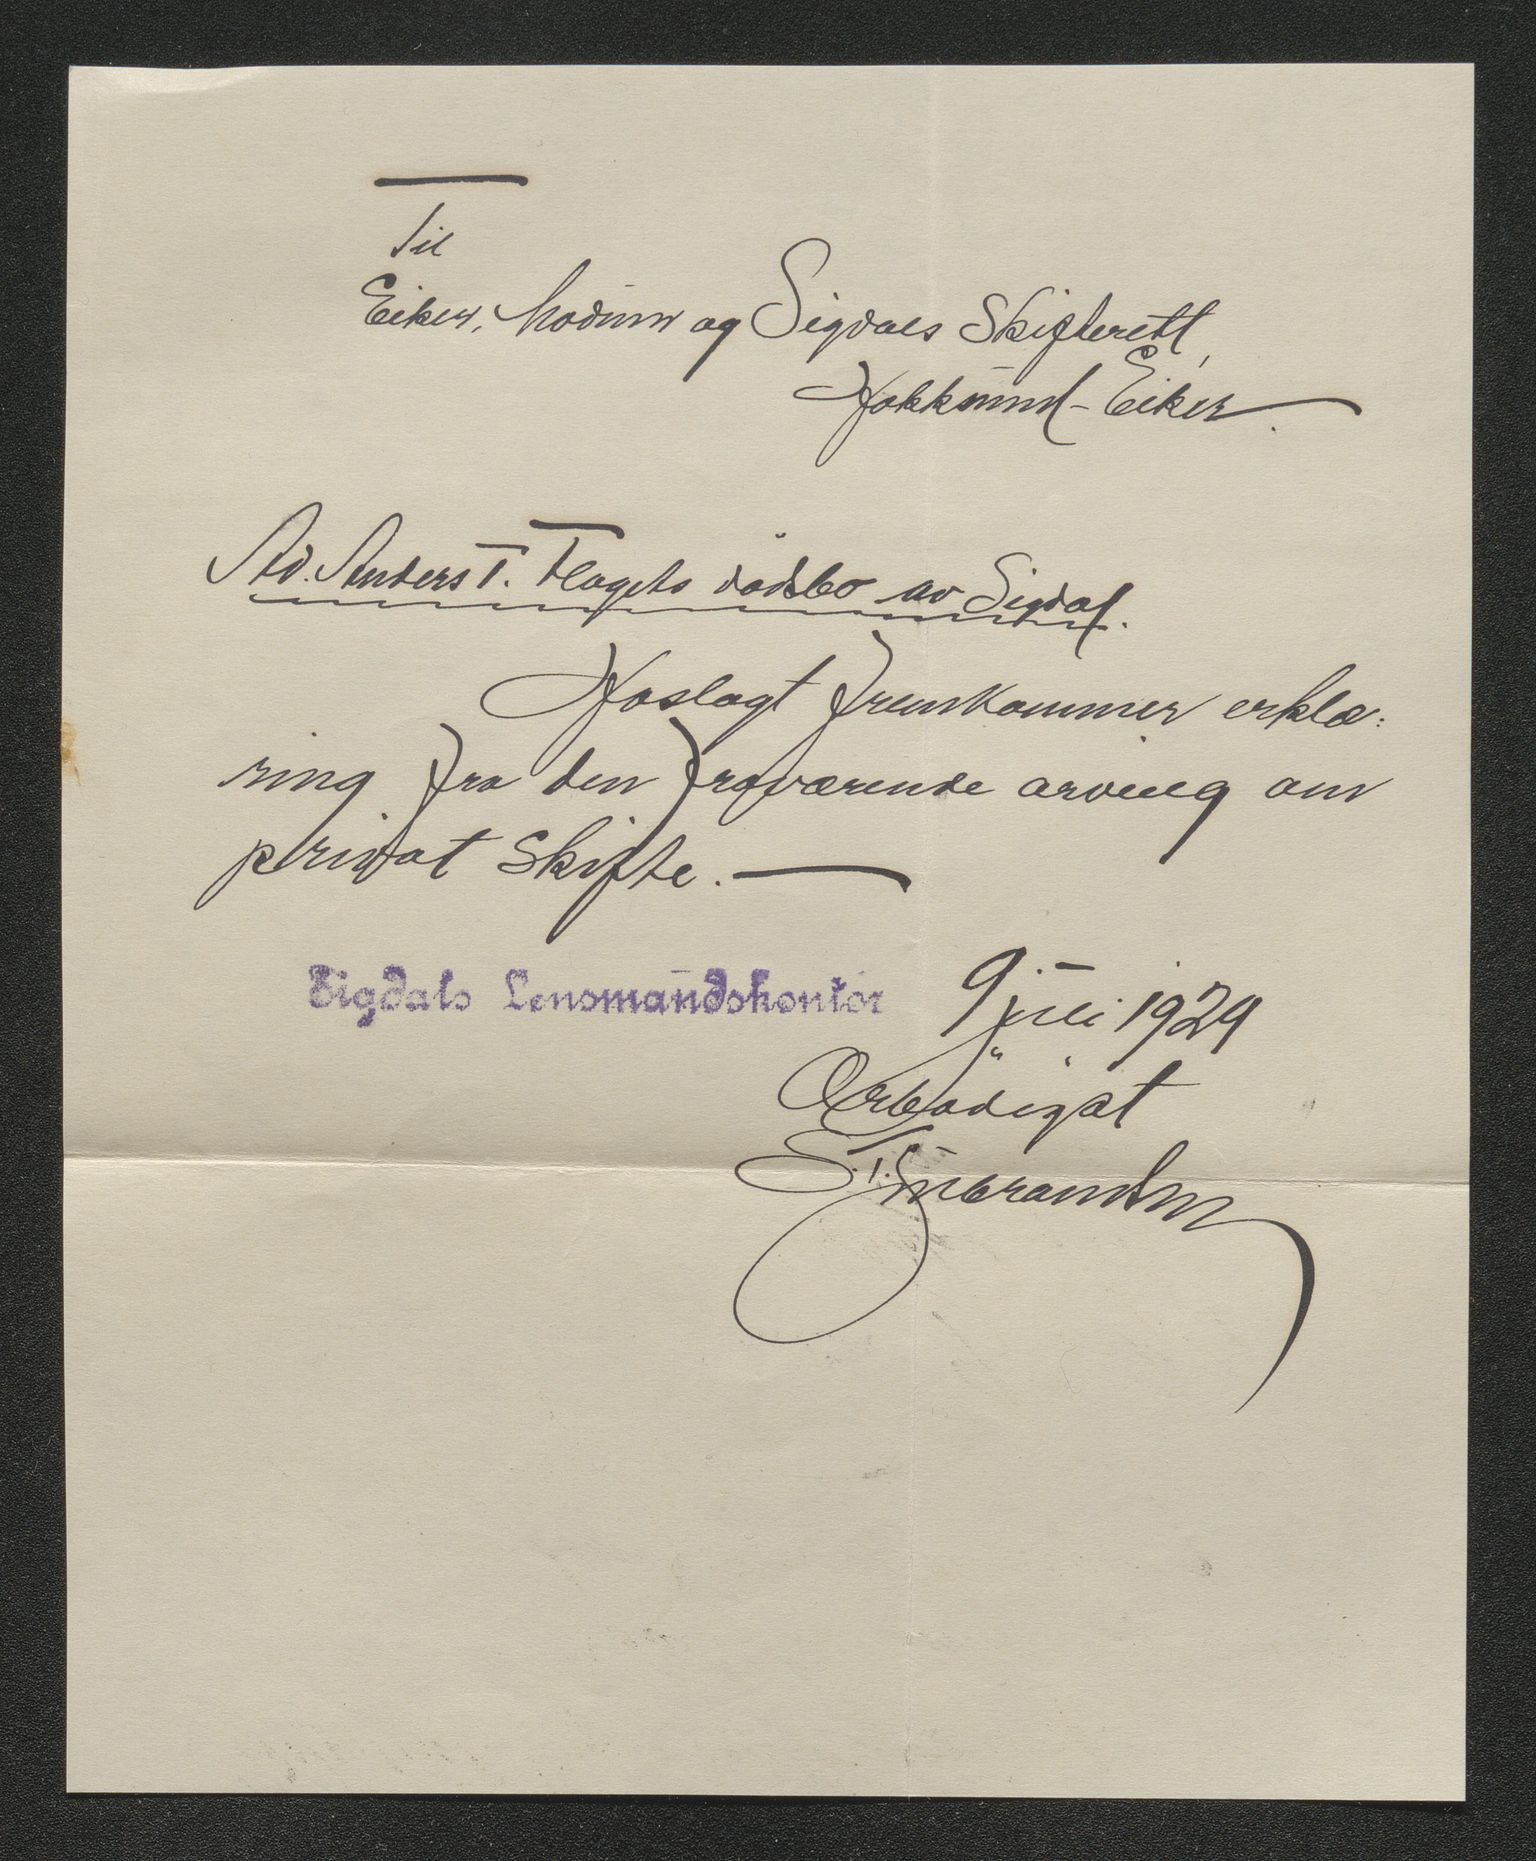 Til
Eiker, Modum og Sigdals Skifterett,
Hokksund - Eiker.
Ad. Anders T. Flagets dødsbo av Sigdal.
Hoslagt fremkommer erklæ-
ring fra den fraværende arving om
privat skifte. —
Sigdals Lensmandskontor 9 juli 1929
Ærbødigst
E. T. Gubrandsen